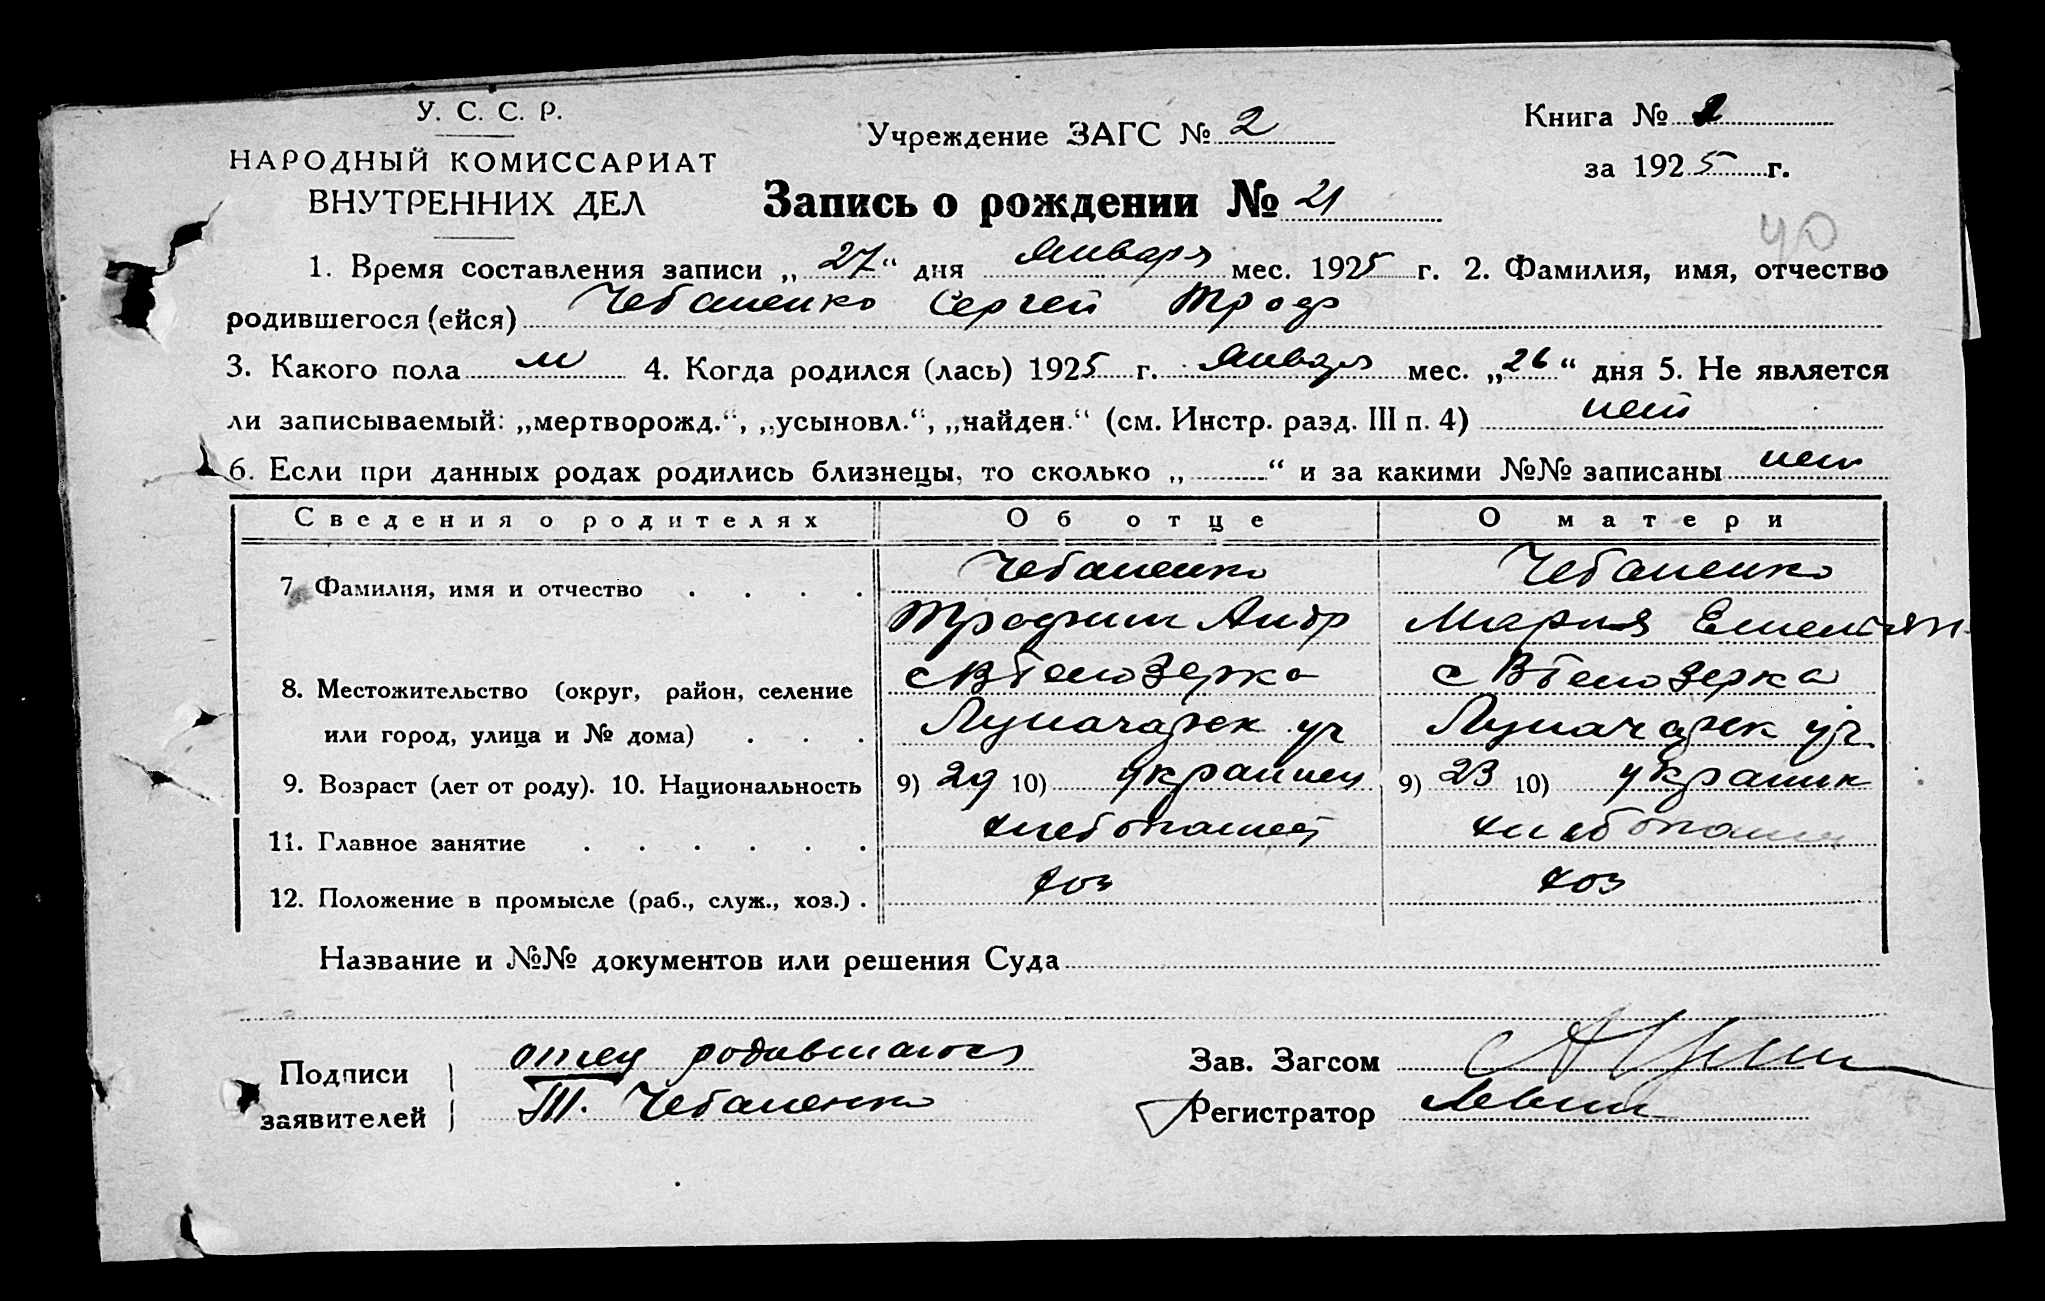 У. С. С. Р.
НАРОДНЫЙ КОМИССАРИАТ
ВНУТРЕННИХ ДЕЛ
Учреждение ЗАГС № 2
Книга № 2
за 1925 г.
Запись о рождении № 21
40
1. Время составления записи „27“ дня Января мес. 1925 г. 2. Фамилия, имя, отчество
родившегося (ейся) Чебаненко Сергей Троф
3. Какого пола м 4. Когда родился (лась) 1925 г. Января мес. „26“ дня 5. Не является
ли записываемый: „мертворожд.“, „усыновл.“, „найден.“ (см. Инстр. разд. III п. 4) нет
6. Если при данных родах родились близнецы, то сколько „ “ и за какими №№ записаны нет
Сведения о родителях Об отце О матери
7. Фамилия, имя и отчество Чебаненко Чебаненко
Трофим Андр Мария Емельян
8. Местожительство (округ, район, селение с В Белозерка с В Белозерка
или город, улица и № дома) Луначарск уч Луначарск уч.
9. Возраст (лет от роду). 10. Национальность 9) 29 10) украинец 9) 23 10) украинк
11. Главное занятие хлебопашец хлебопашец
12. Положение в промысле (раб., служ., хоз.) хоз хоз
Название и №№ документов или решения Суда
Подписи отец родившагося
заявителей Т. Чебаненко
Зав. Загсом
Регистратор Левин